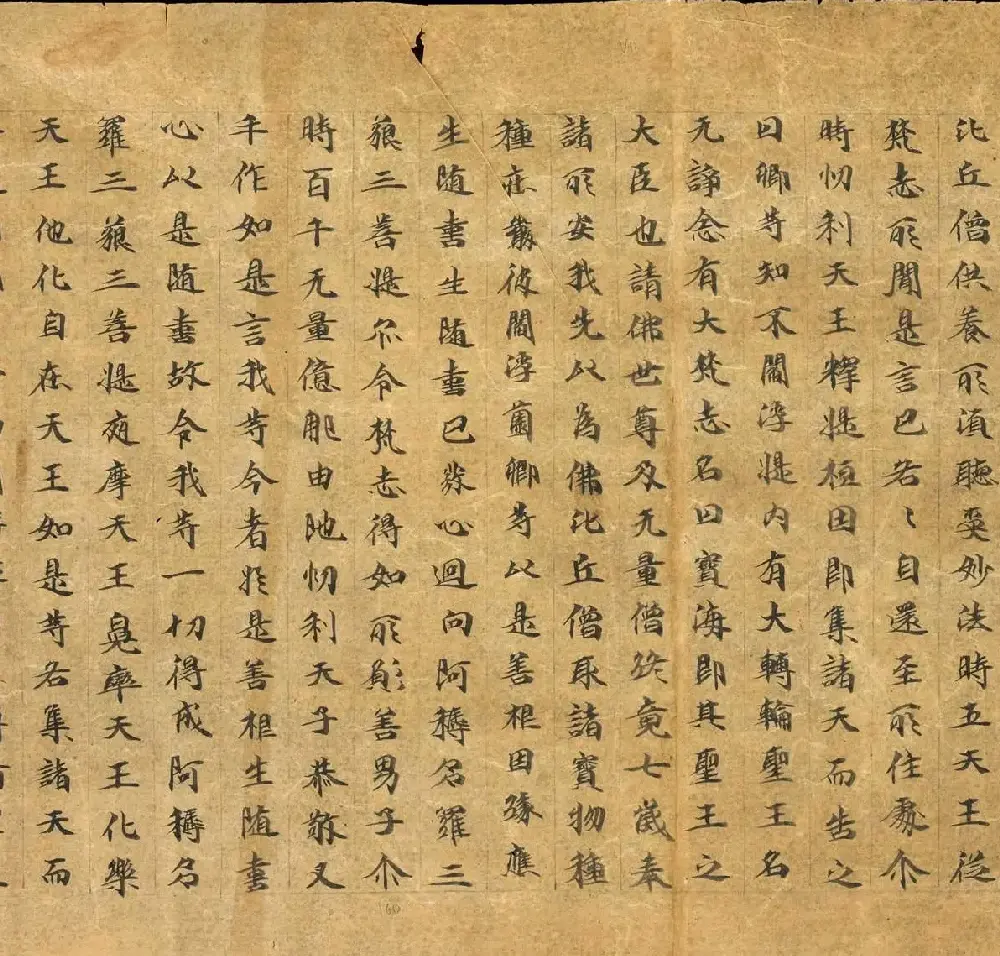 比丘僧供養所須聽受妙法時五天王從
梵志所聞是言已各々自還至所住處尒
時忉利天王釋提桓因即集諸天而告之
曰卿等知不閻浮提内有大轉輪聖王名
无諍念有大梵志名曰寶海即其聖王之
大臣也請佛世尊及无量僧終竟七歲奉
諸所安我先以為佛比丘僧取諸寶物種
種庄嚴彼閻浮薗卿等以是善根因緣應
生随喜生随喜已發心迴向阿耨多羅三
藐三菩提尒令梵志得如所願善男子尒
時百千无量億那由他忉利天子恭敬叉
手作如是言我等今者於是善根生随喜
心以是随喜故令我等一切得成阿耨多
羅三藐三菩提夜摩天王兜率天王化樂
天王他化自在天王如是等各集諸天而